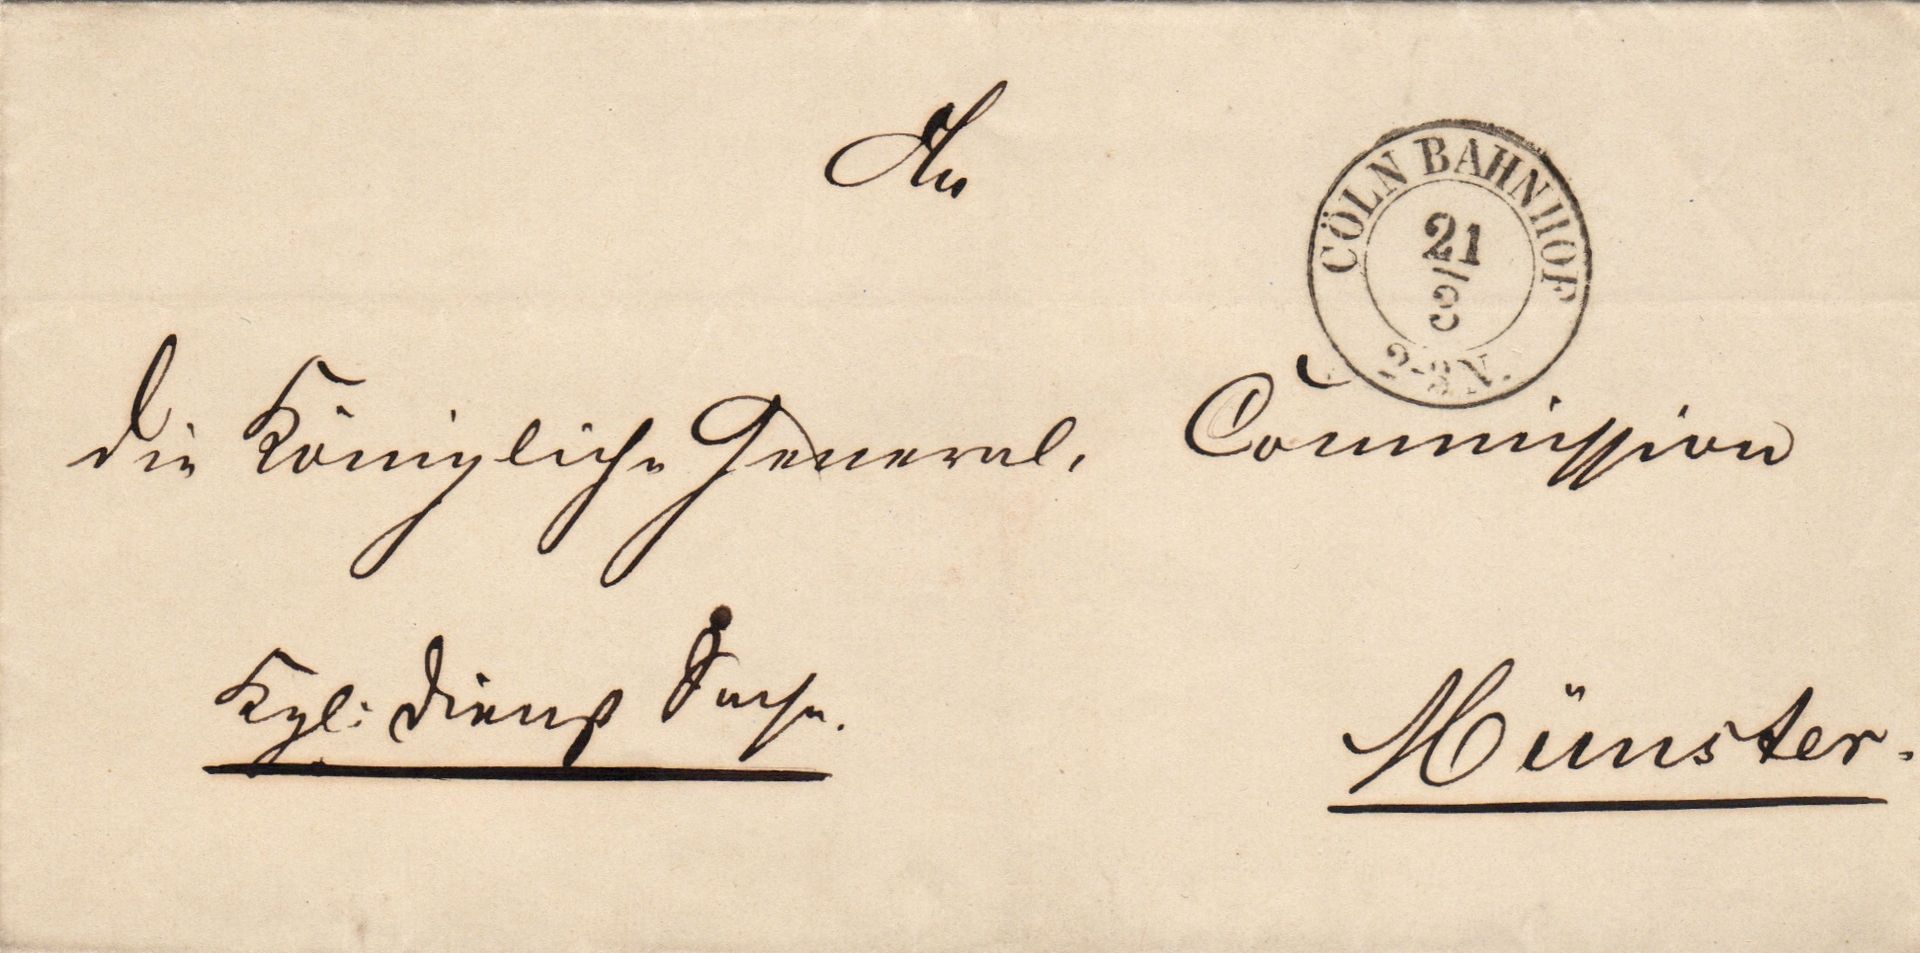 An
CÖLN BAHNHOF
21
2-3 N.
die Königliche General-Commission
Kgl: Dienst Sache.
Münster.